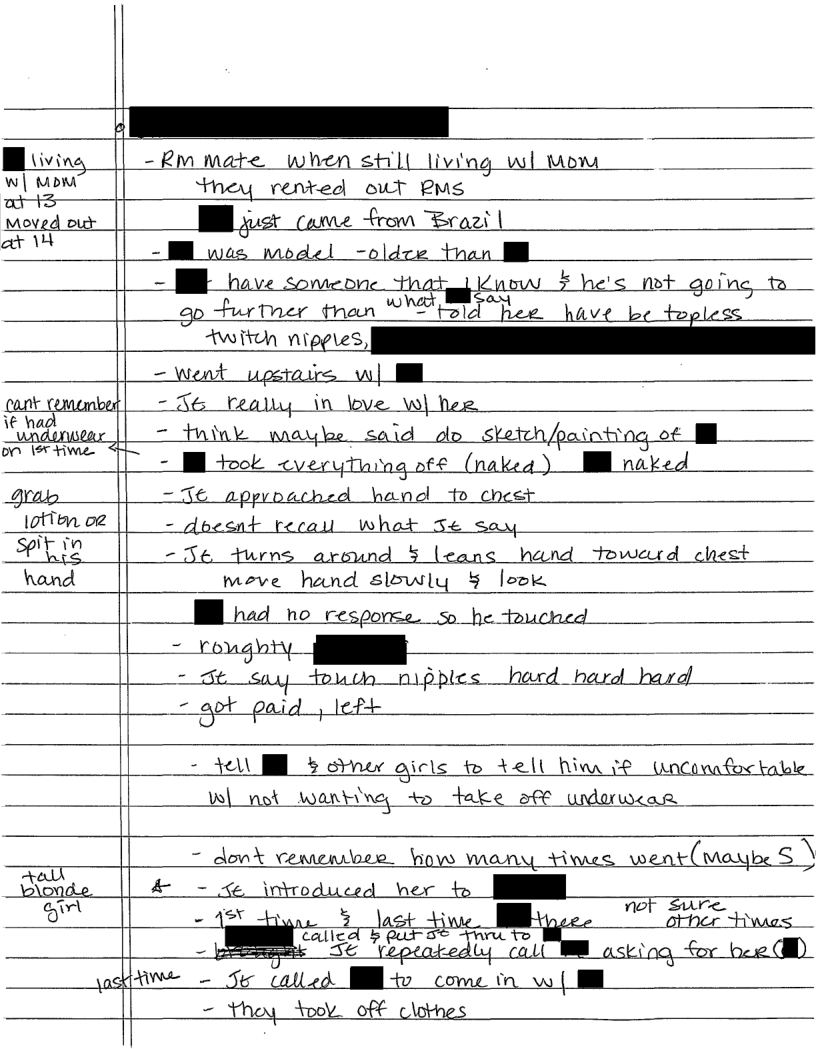 living
w/ MOM
at 13
Moved out
at 14
- Rm mate when still living w/ MOM
they rented out RMS
just came from Brazil
- was model - older than
- have someone that I know & he's not going to
go further than what say - told her have be topless
twitch nipples,
- went upstairs w/
- JE really in love w/ her
cant remember
if had
underwear
on 1st time ←
- think maybe said do sketch/painting of
- took everything off (naked) naked
- JE approached hand to chest
grab
lotion or
spit in
his
hand
- doesnt recall what JE say
- JE turns around & leans hand toward chest
move hand slowly & look
had no response so he touched
- roughty
- JE say touch nipples hard hard hard
- got paid, left
- tell & other girls to tell him if uncomfortable
w/ not wanting to take off underwear
- dont remember how many times went (maybe 5)
tall
blonde
girl
- JE introduced her to
- 1st time & last time there not sure
other times
called & put JE thru to
- JE repeatedly call asking for her ( )
last time - JE called to come in w/
- they took off clothes